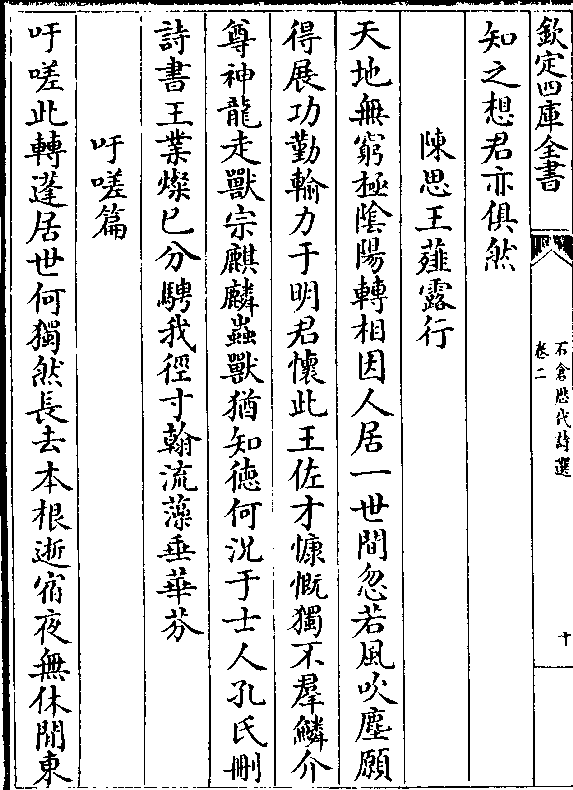 欽定四庫全書
石倉歷代詩選
卷二
十
知之想君亦俱然
陳思王薤露行
天地無窮極陰陽轉相因人居一世間忽若風吹塵願
得展功勤輸力于明君懷此王佐才慷慨獨不羣鱗介
尊神龍走獸宗麒麟蟲獸猶知德何況于士人孔氏刪
詩書王業燦已分騁我徑寸翰流藻垂華芬
吁嗟篇
吁嗟此轉蓬居世何獨然長去本根逝宿夜無休閒東